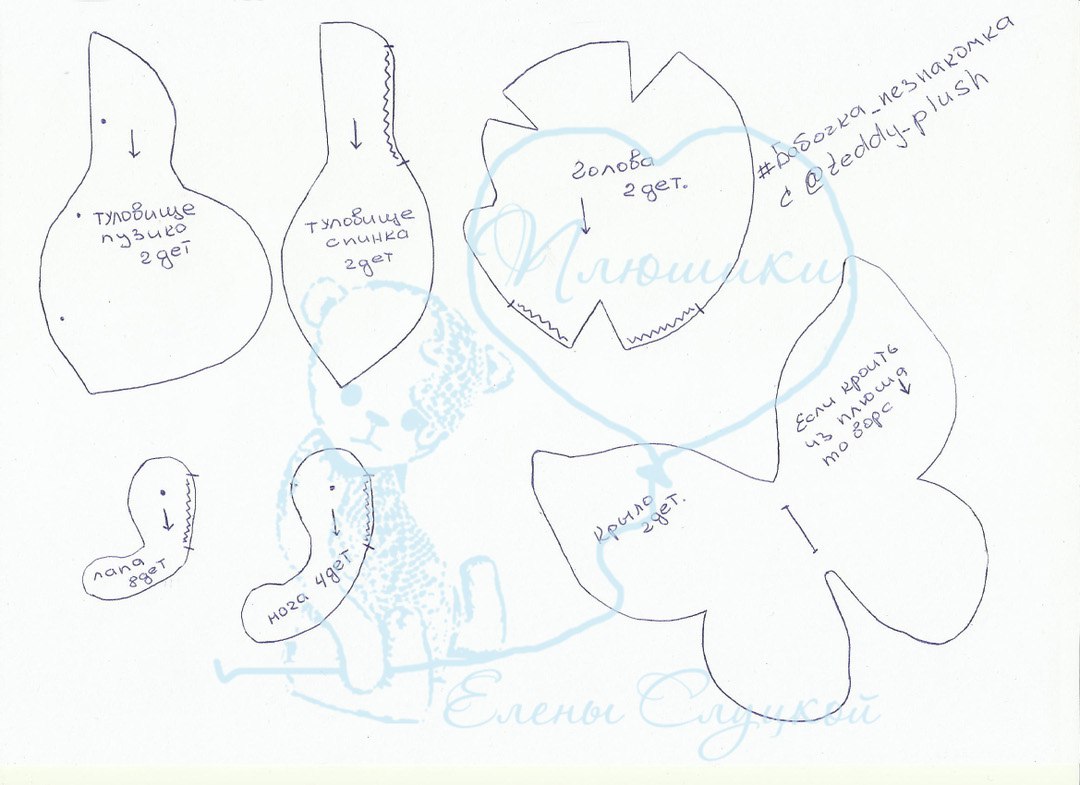 туловище
пузико
2дет
туловище
спинка
2дет
Голова
2дет.
#бабочка_незнакомка
с @teddy-plush
Плюшики
Если кроить
из плюша
то ворс
крыло
2дет.
лапа
8дет
нога 4дет
Елены Слуцкой